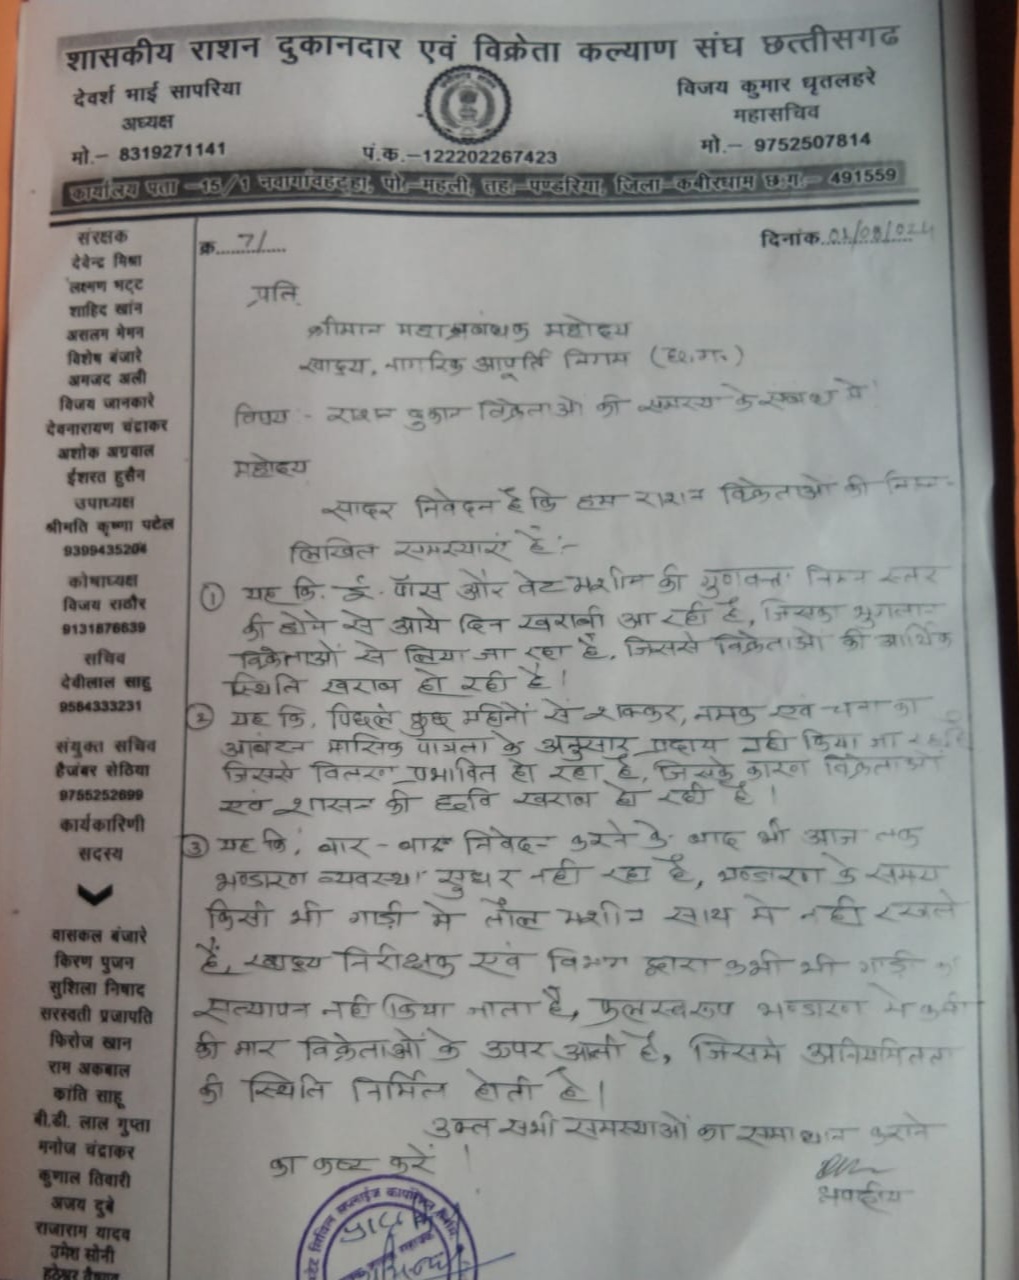 शासकीय राशन दुकानदार एवं विक्रेता कल्याण संघ छत्तीसगढ
देवर्श भाई सापरिया
अध्यक्ष
मो.– 8319271141
पं.क.–122202267423
विजय कुमार धृतलहरे
महासचिव
मो.– 9752507814
कार्यालय पता –15/1 नवागांवहटहा, पो.–महली, तह.–पण्डरिया, जिला–कबीरधाम छ.ग.– 491559
संरक्षक
देवेन्द्र मिश्रा
लक्ष्मण भट्ट
शाहिद खांन
असलम मेमन
विशेष बंजारे
अमजद अली
विजय जानकारे
देवनारायण चंद्राकर
अशोक अग्रवाल
ईशरत हुसैन
उपाध्यक्ष
श्रीमति कृष्णा पटेल
9399435204
कोषाध्यक्ष
विजय राठौर
9131876639
सचिव
देवीलाल साहू
9584333231
संयुक्त सचिव
हैजंबर सेठिया
9755252699
कार्यकारिणी
सदस्य
वासकल बंजारे
किरण पुजन
सुशिला निषाद
सरस्वती प्रजापति
फिरोज खान
राम अकबाल
कांति साहू
बी.डी. लाल गुप्ता
मनोज चंद्राकर
कुणाल तिवारी
अजय दुबे
राजाराम यादव
उमेश सोनी
क्र. 7/
दिनांक
प्रति,
श्रीमान महाप्रबंधक महोदय
खाद्य, नागरिक आपूर्ति निगम (छ.ग.)
विषय - राशन दुकान विक्रेताओं की समस्य के संबंध में
महोदय
सादर निवेदन है कि हम राशन विक्रेताओं की निम्न-
लिखित समस्याएं हैं:-
① यह कि, ई-पॉस और वेट मशीन की गुणवत्ता निम्न स्तर
की होने से आये दिन खराबी आ रही है, जिसका भुगतान
विक्रेताओं से लिया जा रहा है, जिससे विक्रेताओं की आर्थिक
स्थिति खराब हो रही है।
② यह कि, पिछले कुछ महीनों से शक्कर, नमक एवं चना का
आबंटन मासिक पात्रता के अनुसार प्रदाय नही किया जा रहा है
जिससे वितरण प्रभावित हो रहा है, जिसके कारण विक्रेताओं
एवं शासन की छवि खराब हो रही है।
③ यह कि, बार-बार निवेदन करने के बाद भी आज तक
भण्डारण व्यवस्था सुधर नही रहा है, भण्डारण के समय
किसी भी गाड़ी मे तौल मशीन साथ मे नही रखते
हैं, खाद्य निरीक्षक एवं विभाग द्वारा कभी भी गाड़ी का
सत्यापन नही किया जाता है, फलस्वरूप भण्डारण मे कमी
की मार विक्रेताओं के ऊपर आती है, जिसमे अनियमितता
की स्थिति निर्मित होती है।
उक्त सभी समस्याओं का समाधान कराने
का कष्ट करें।
भवदीय
स्टेट सिविल सप्लाईज कार्पोरेशन